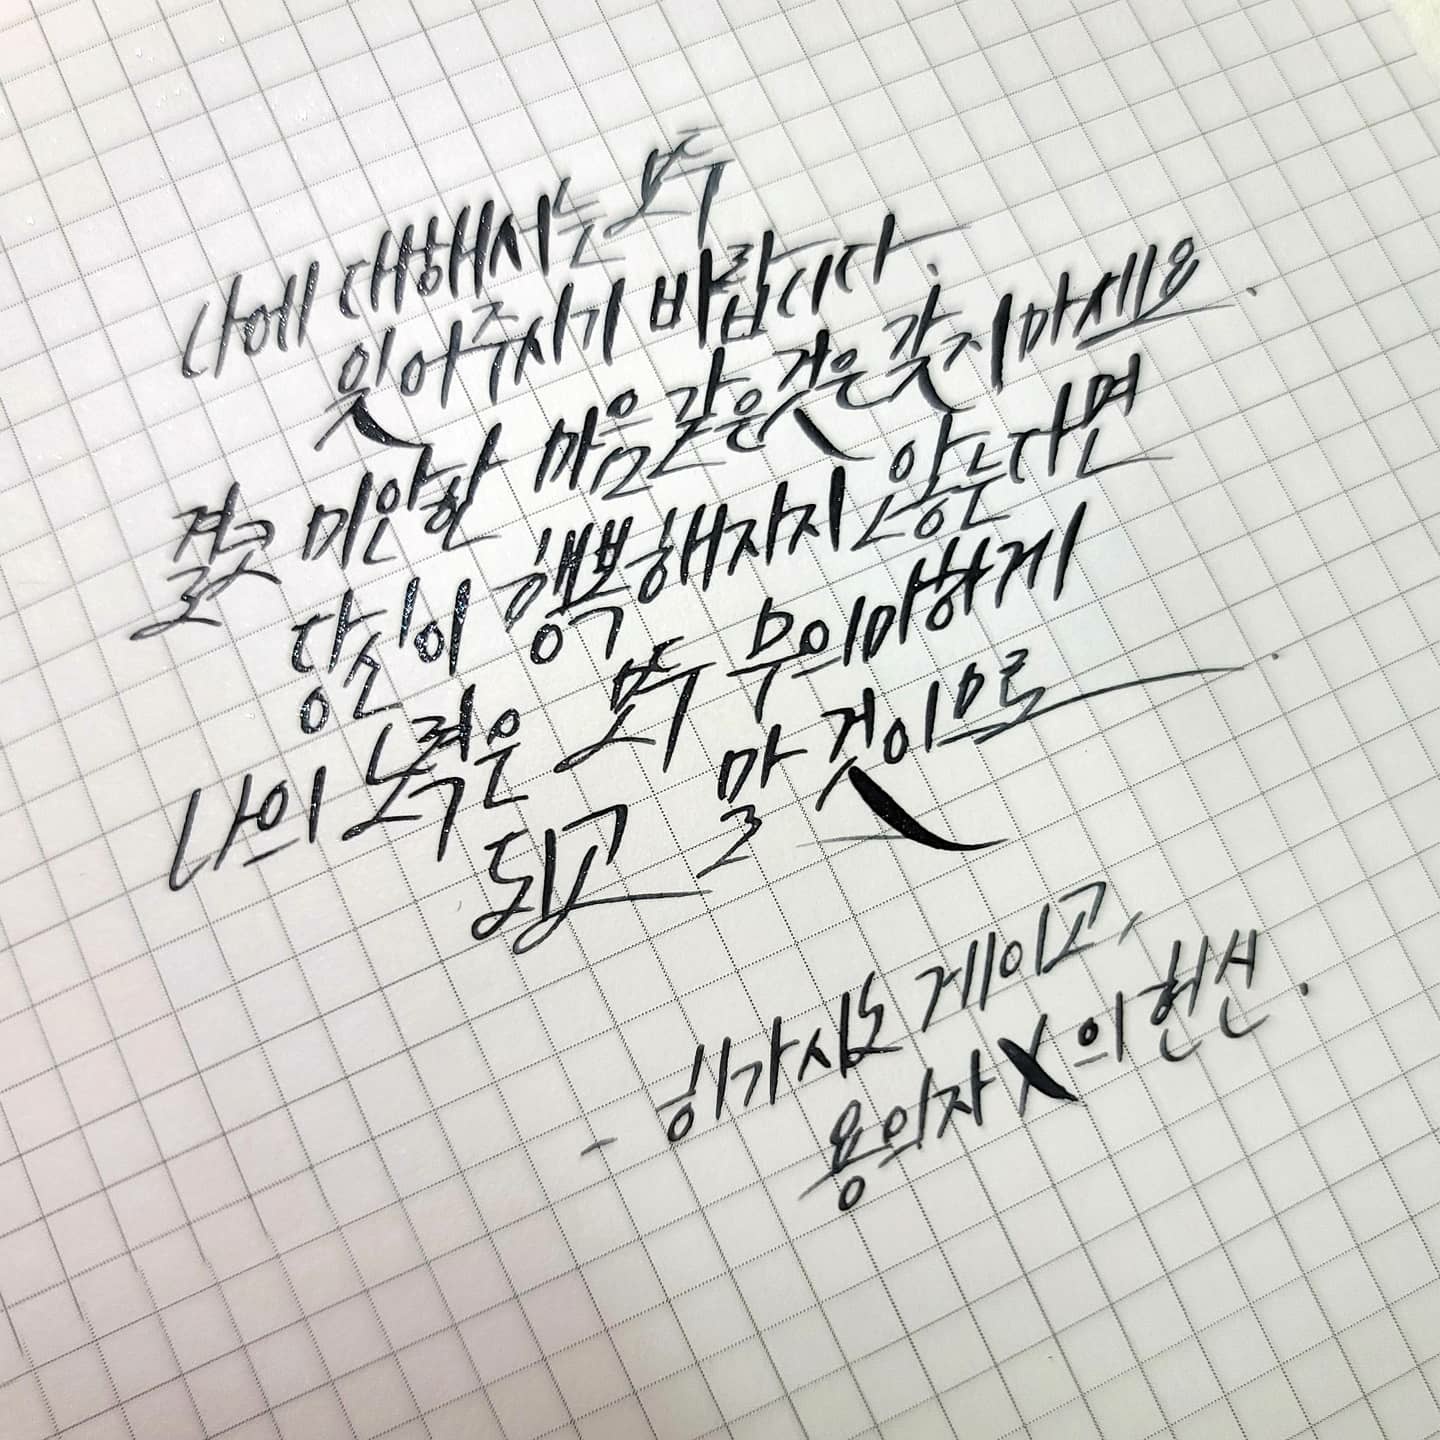 나에 대해서는 모두
잊어주시기 바랍니다.
결코 미안한 마음 같은것은 갖지 마세요.
당신이 행복해지지 않는다면
나의 노력은 모두 무의미하게
되고 말 것이므로.
- 히가시노 게이고,
용의자 X의 헌신.